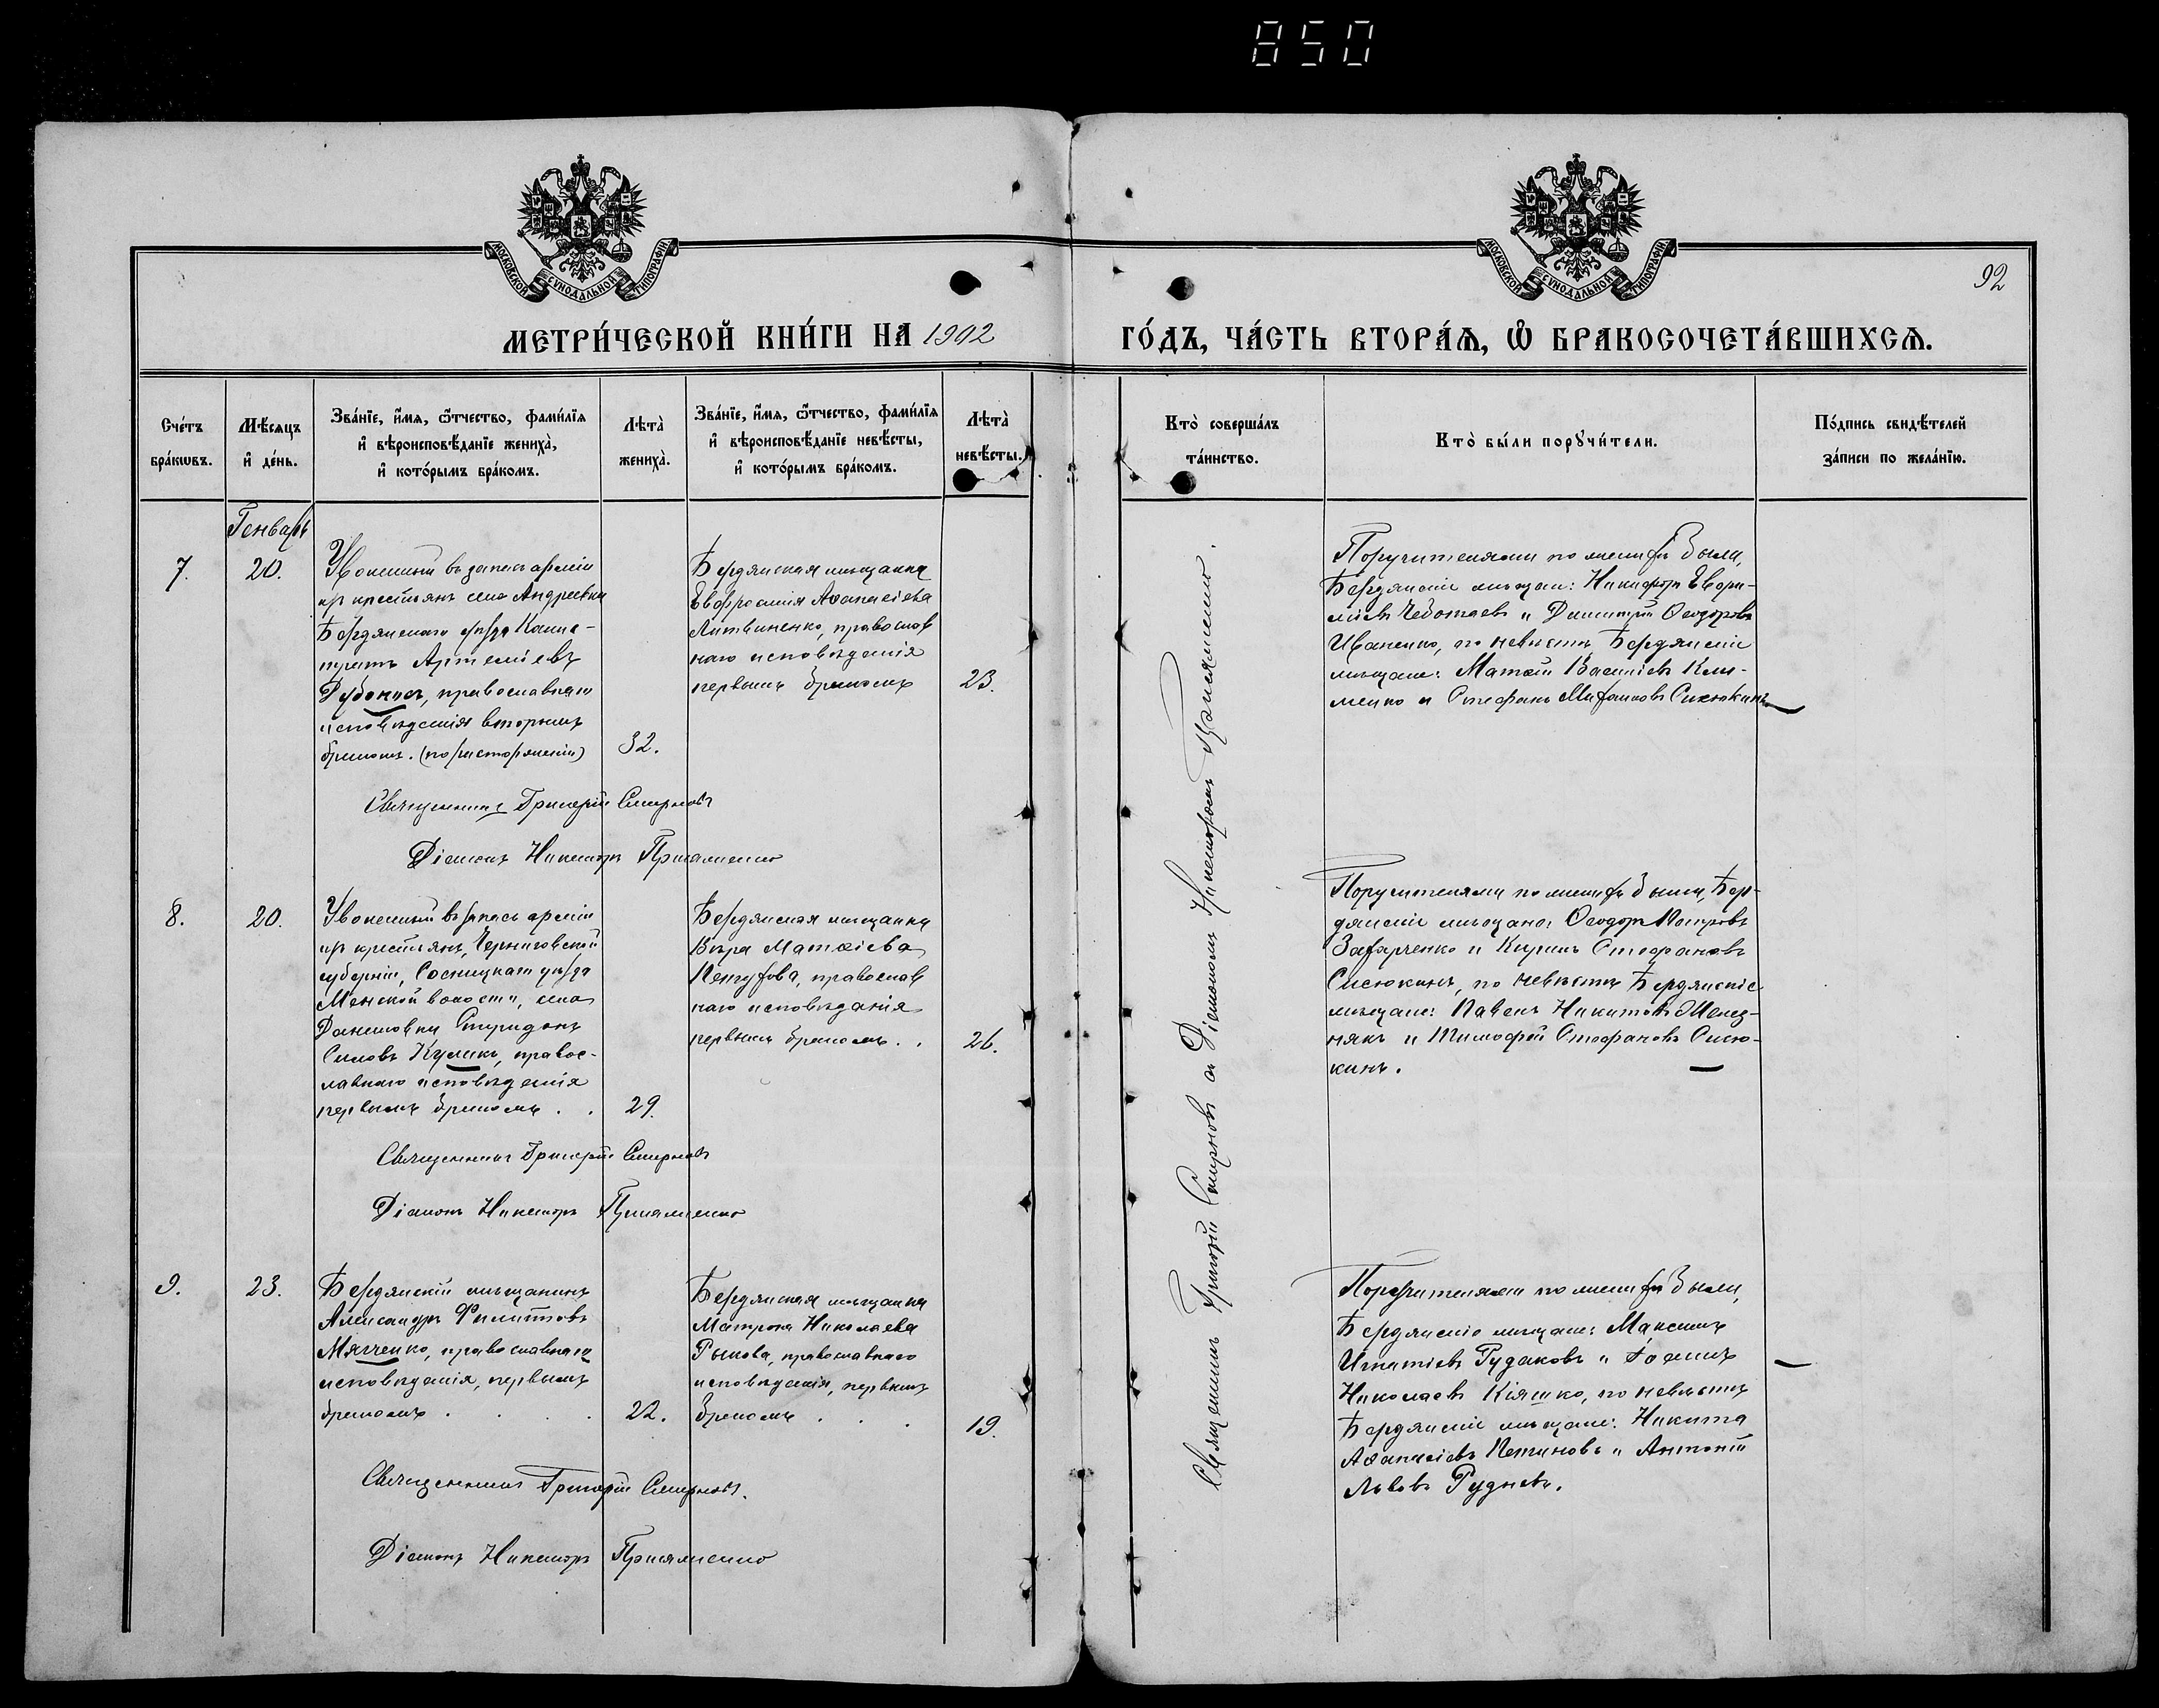 850
МОСКОВСКОЙ СѴНОДАЛЬНОЙ ТИПОГРАФІИ
МОСКОВСКОЙ СѴНОДАЛЬНОЙ ТИПОГРАФІИ
92
МЕТРИ́ЧЕСКОЙ КНИ́ГИ НА 1902 ГО́ДЪ, ЧА́СТЬ ВТОРА́Ѧ, Ѽ БРАКОСОЧЕТА́ВШИХСѦ.
Сче́тъ бра́кѡвъ.
Мѣ́сѧцъ и҆ де́нь.
Зва́нїе, и҆́мѧ, ѻ҆́тчество, фами́лїѧ
и҆ вѣроисповѣ́данїе женихà,
и҆ кото́рымъ бра́комъ.
Лѣтà женихà.
Зва́нїе, и҆́мѧ, ѻ҆́тчество, фами́лїѧ
и҆ вѣроисповѣ́данїе невѣ́сты,
и҆ кото́рымъ бра́комъ.
Лѣтà невѣ́сты.
Кто̀ соверша́лъ та́инство.
Кто̀ бы́ли порꙋчи́тели.
По́дпись свидѣ́телей за́писи по жела́нїю.
Генварь
7.
20.
Уволенный въ запасъ арміи
из крестьянъ села Андреевки
Бердянскаго уѣзда
Артеміевъ
православнаго
исповѣданія вторымъ
бракомъ. (по расторженіи)
32.
Бердянская мѣщанка
Евфросинія Аѳанасіева
Литвиненко, православ
наго исповѣданія
первымъ бракомъ
23.
Поручителями по женихѣ были,
Бердянскіе мѣщане: Никифоръ
и Димитрій Ѳеодоровъ
Иваненко, по невѣстѣ, Бердянскіе
мѣщане: Матѳій Василіевъ Кли-
менко и Стефанъ Сисюкинъ
Священникъ Григорій Смирновъ
Діаконъ Никаноръ
Священникъ Григорій Смирновъ съ Діакономъ Никаноромъ
8.
20.
Уволенный въ запасъ арміи
из крестьянъ, Черниговской
губерніи, Сосницкаго уѣзда
Менской волости, села
Даниловки Спиридонъ
Силовъ Куликъ, правос-
лавнаго исповѣданія
первымъ бракомъ . .
29.
Бердянская мѣщанка
Вѣра Матѳіева
православ
наго исповѣданія
первымъ бракомъ . .
26.
Поручителями по женихѣ были, Бер-
дянскіе мѣщане: Ѳеодоръ Петровъ
Захарченко и Стефановъ
Сисюкинъ, по невѣстѣ Бердянскіе
мѣщане: Павелъ Никитовъ
и Тимофей Стефановъ Сисю-
кинъ.
Священникъ Григорій Смирновъ
Діаконъ Никаноръ
9.
23.
Бердянскій мѣщанинъ
Александръ Филипповъ
Мягченко, православнаго
исповѣданія, первымъ
бракомъ . . . .
22.
Бердянская мѣщанка
Матрона Николаева
Рыкова, православнаго
исповѣданія, первымъ
бракомъ . . .
19.
Поручителями по женихѣ были,
Бердянскіе мѣщане: Максимъ
Игнатіевъ Рудаковъ и
Николаевъ Кіяшко, по невѣстѣ
Бердянскіе мѣщане: Никита
Аѳанасіевъ и Антоній
Львовъ Рудневъ.
Священникъ Григорій Смирновъ.
Діаконъ Никаноръ